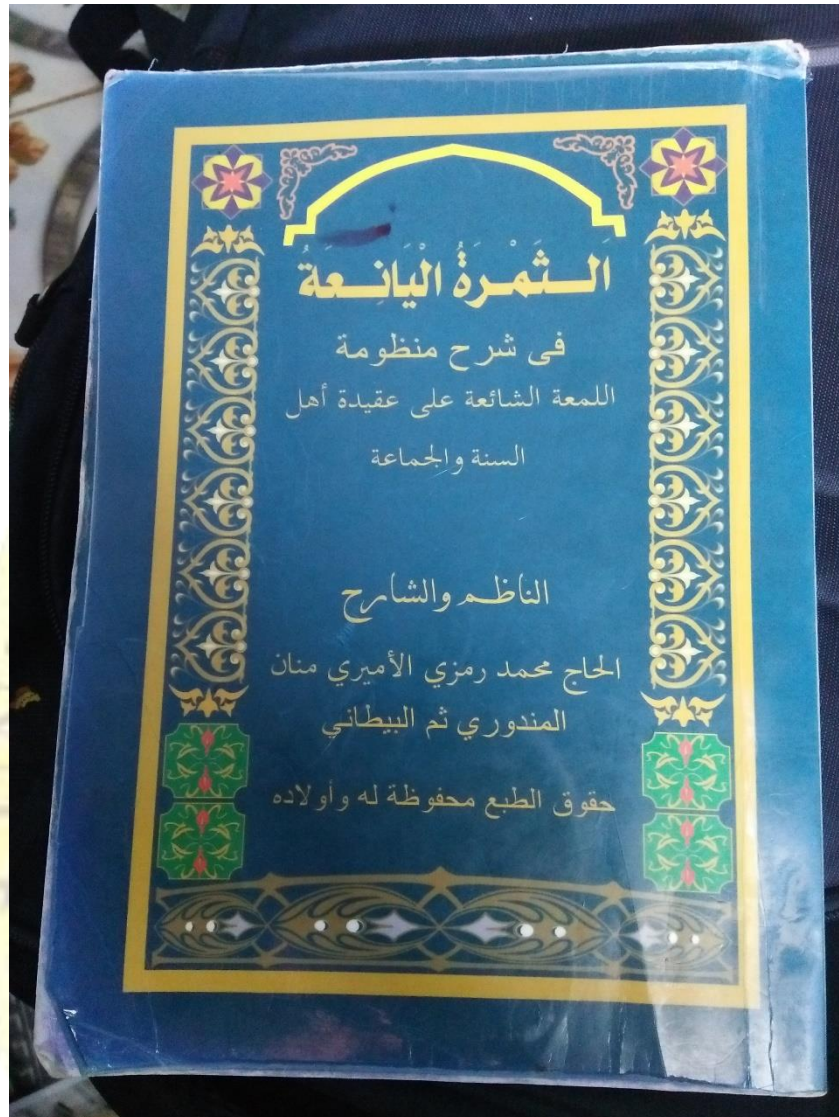 اَلــثَمْــرَةُ الْيَانِــعَةُ
فى شرح منظومة
اللمعة الشائعة على عقيدة أهل
السنة والجماعة
الناظم والشارح
الحاج محمد رمزي الأميري منان
المندوري ثم البيطاني
حقوق الطبع محفوظة له وأولاده